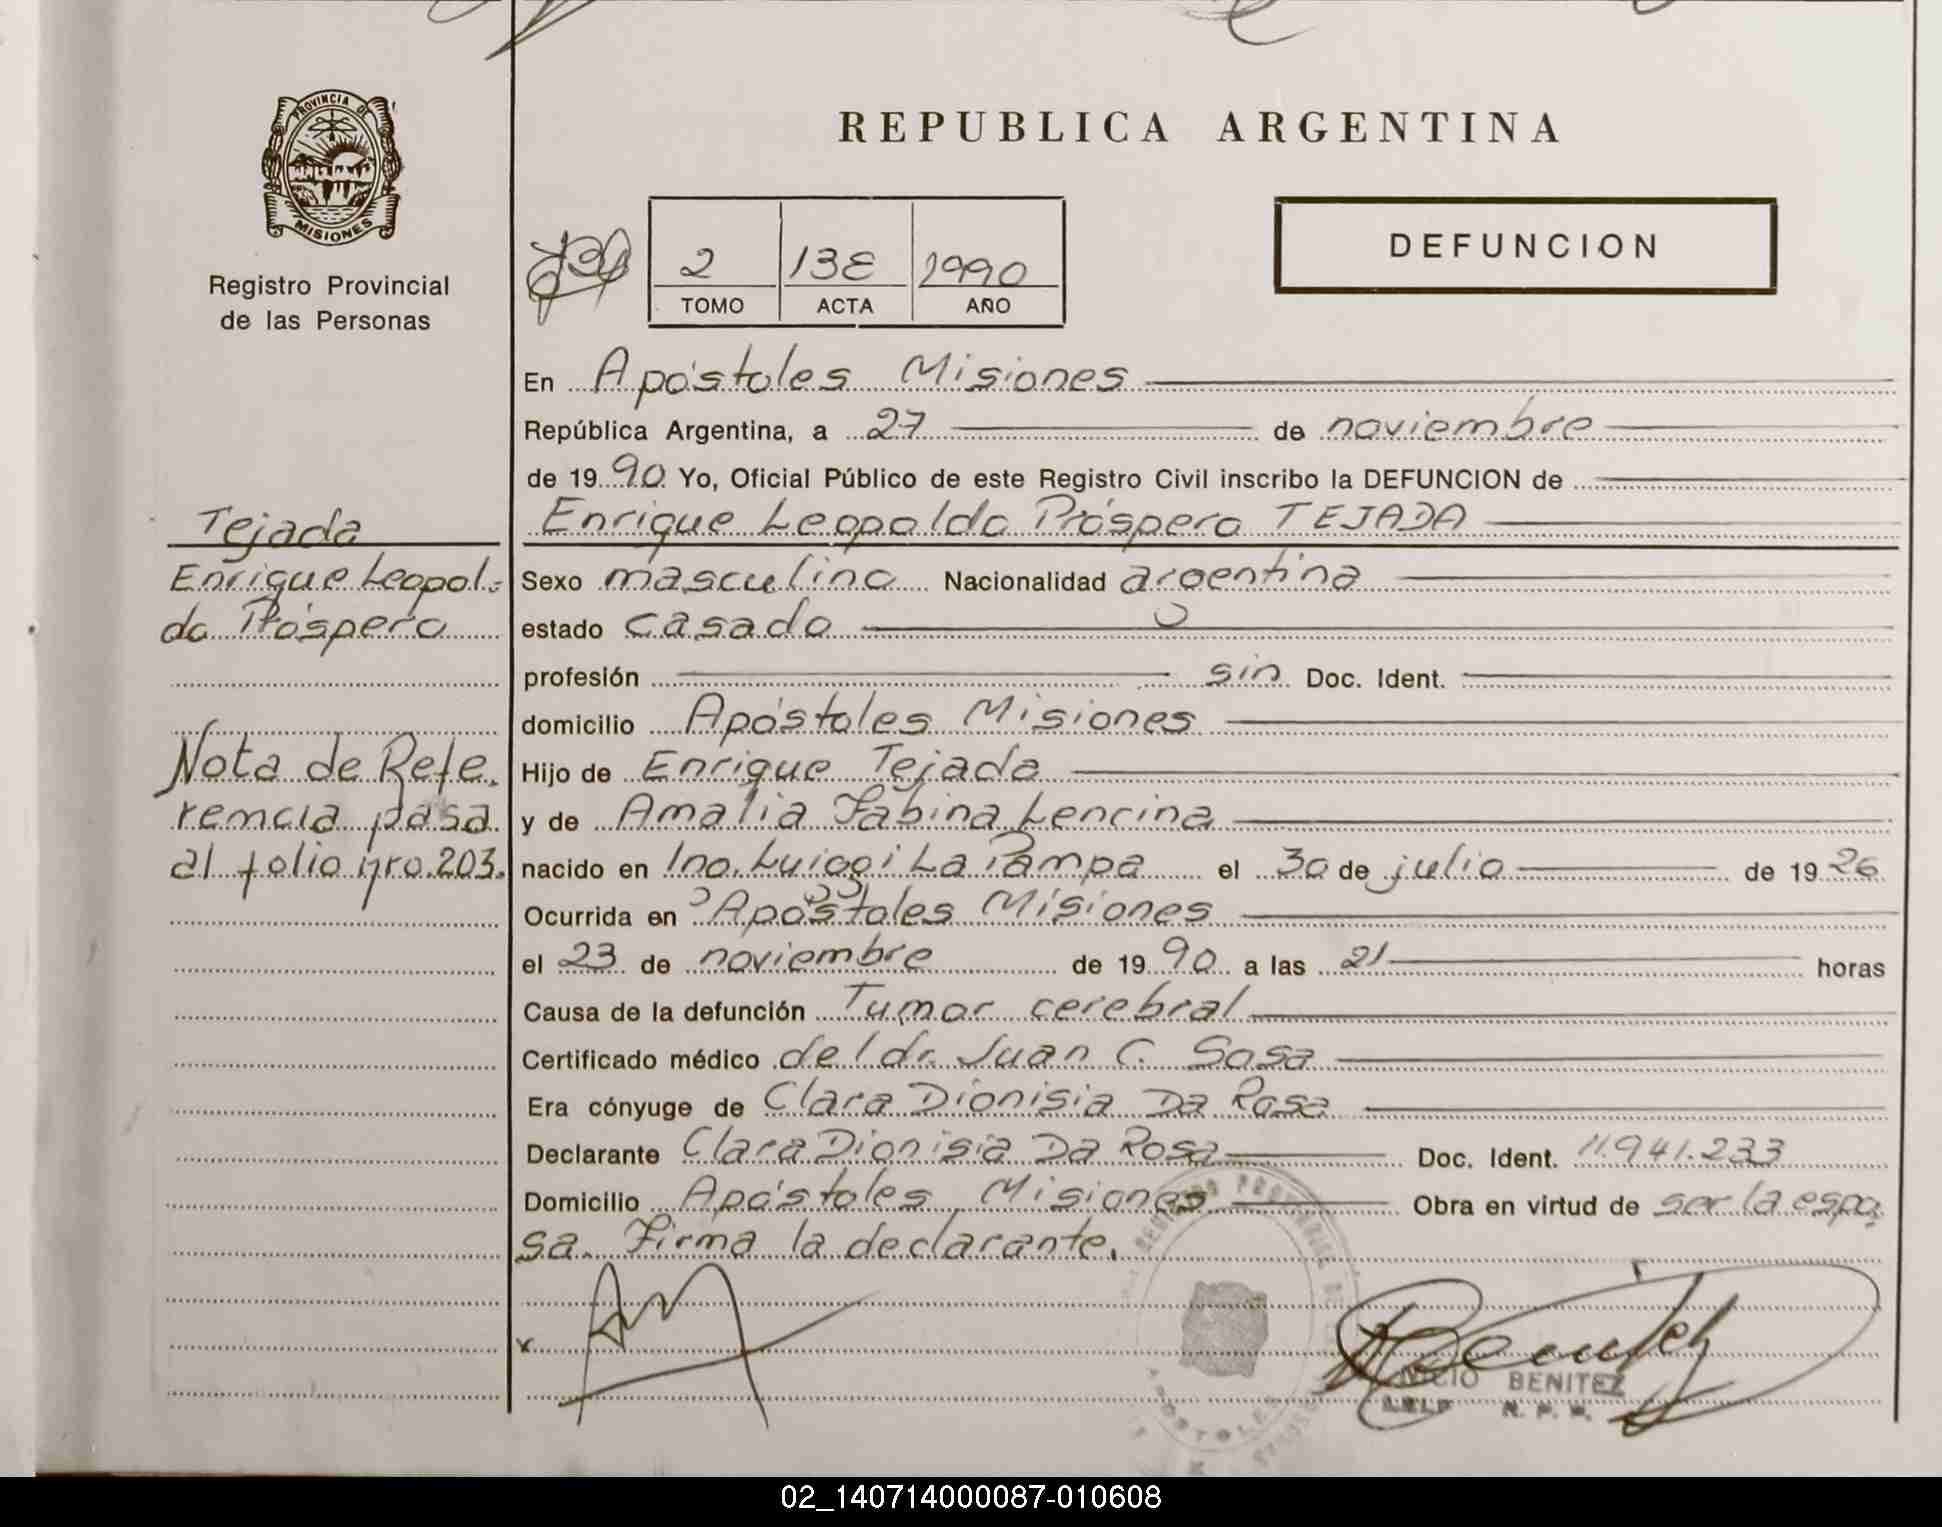 PROVINCIA DE
MISIONES
Registro Provincial
de las Personas
REPUBLICA ARGENTINA
DEFUNCION
2 13E 1990
TOMO ACTA AÑO
En Apóstoles Misiones
República Argentina, a 27 de noviembre
de 1990 Yo, Oficial Público de este Registro Civil inscribo la DEFUNCION de
Enrique Leopoldo Próspero TEJADA
Sexo masculino Nacionalidad argentina
estado casado
profesión sin Doc. Ident.
domicilio Apóstoles Misiones
Hijo de Enrique Tejada
y de Amalia Sabina Lencina
nacido en Ing. Luiggi La Pampa el 30 de julio de 1926
Ocurrida en Apóstoles Misiones
el 23 de noviembre de 1990 a las 21 horas
Causa de la defunción Tumor cerebral
Certificado médico del dr. Juan C. Sosa
Era cónyuge de Clara Dionisia Da Rosa
Declarante Clara Dionisia Da Rosa Doc. Ident. 11.941.233
Domicilio Apóstoles Misiones Obra en virtud de ser la espo-
sa. Firma la declarante.
Tejada
Enrique Leopol-
do Próspero
Nota de Refe-
rencia pasa
al folio nro. 203.
BENITEZ
02_140714000087-010608